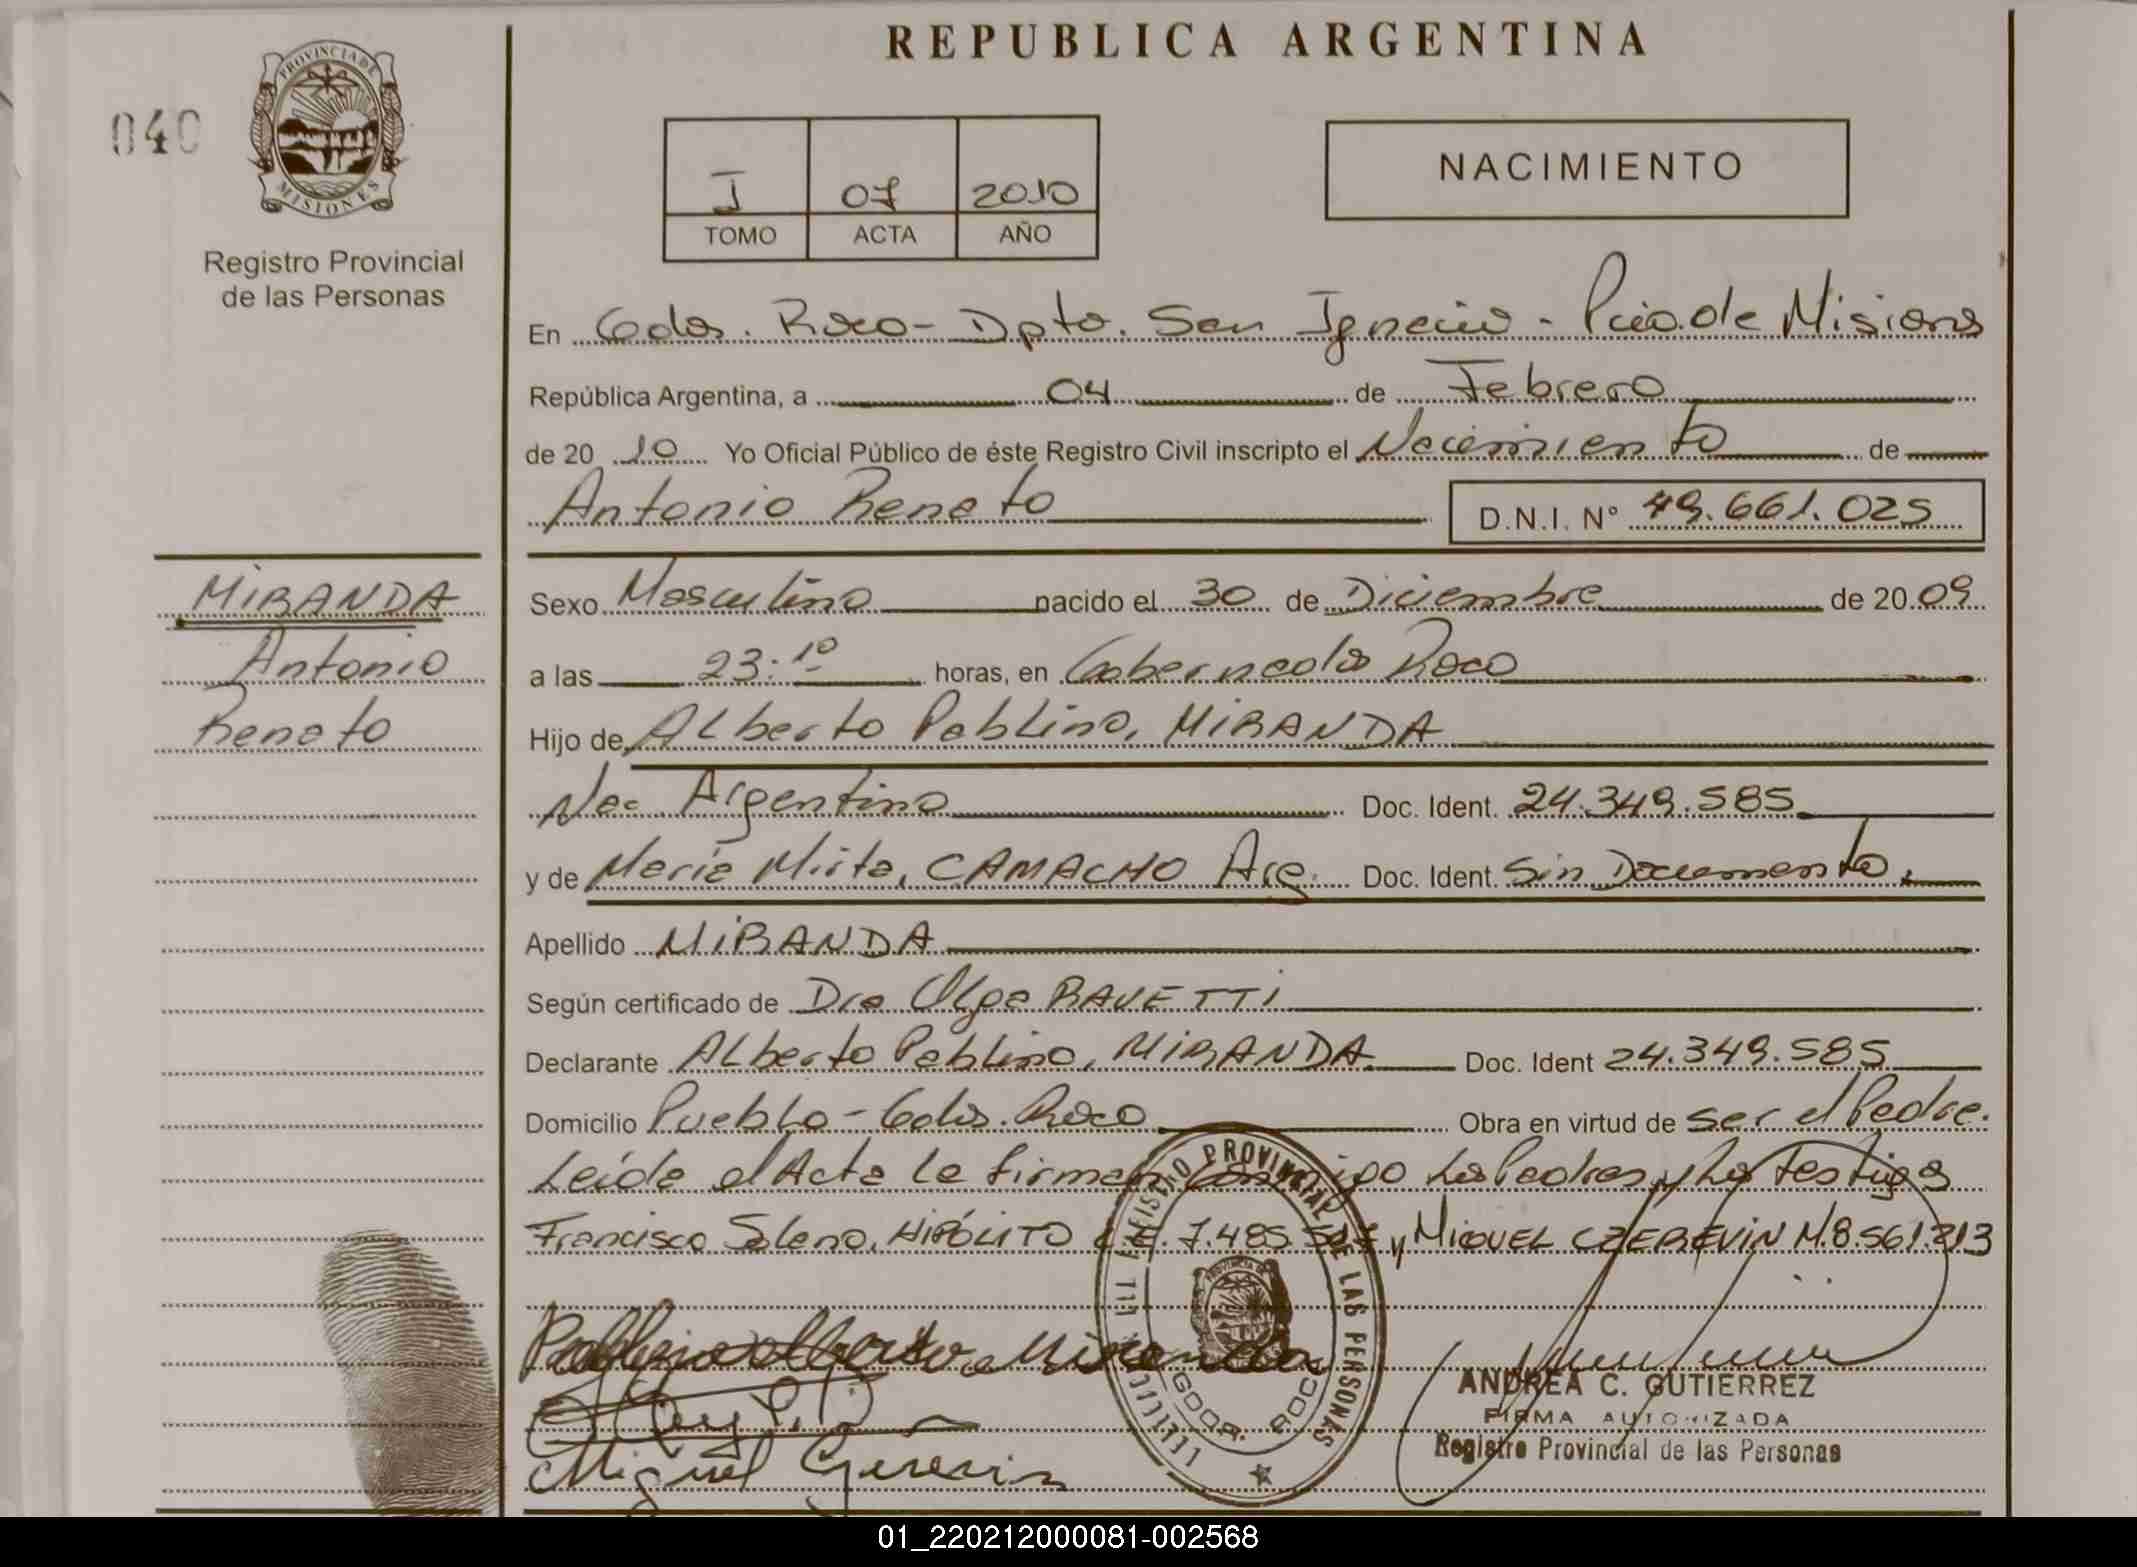 REPUBLICA ARGENTINA
040
PROVINCIA DE
MISIONES
Registro Provincial
de las Personas
I 07 2010
TOMO ACTA AÑO
NACIMIENTO
En Gdor. Roca - Dpto. San Ignacio - Pcia. de Misiones
República Argentina, a 04 de Febrero
de 20 10 Yo Oficial Público de éste Registro Civil inscripto el Nacimiento de
Antonio Renato
D.N.I. N° 49.661.025
MIRANDA
Antonio
Renato
Sexo Masculino nacido el 30 de Diciembre de 20 09
a las 23:10 horas, en Gobernador Roca
Hijo de Alberto Pablino, MIRANDA
Nac. Argentina Doc. Ident. 24.349.585
y de María Mirta, CAMACHO Arg. Doc. Ident. Sin Documento.
Apellido MIRANDA
Según certificado de Dra Olga RAVETTI
Declarante Alberto Pablino, MIRANDA. Doc. Ident 24.349.585
Domicilio Pueblo - Gdor. Roca Obra en virtud de ser el Padre.
Leída el Acta la firman conmigo los Padres y los testigos
Francisco Solano, HIPÓLITO 7.485 y MIGUEL CZEREVIN M.8.561.213
REGISTRO PROVINCIAL DE LAS PERSONAS
GDOR. ROCA
Pablino Alberto Miranda
Miguel Czerevin
ANDREA C. GUTIERREZ
FIRMA AUTORIZADA
Registro Provincial de las Personas
01_220212000081-002568